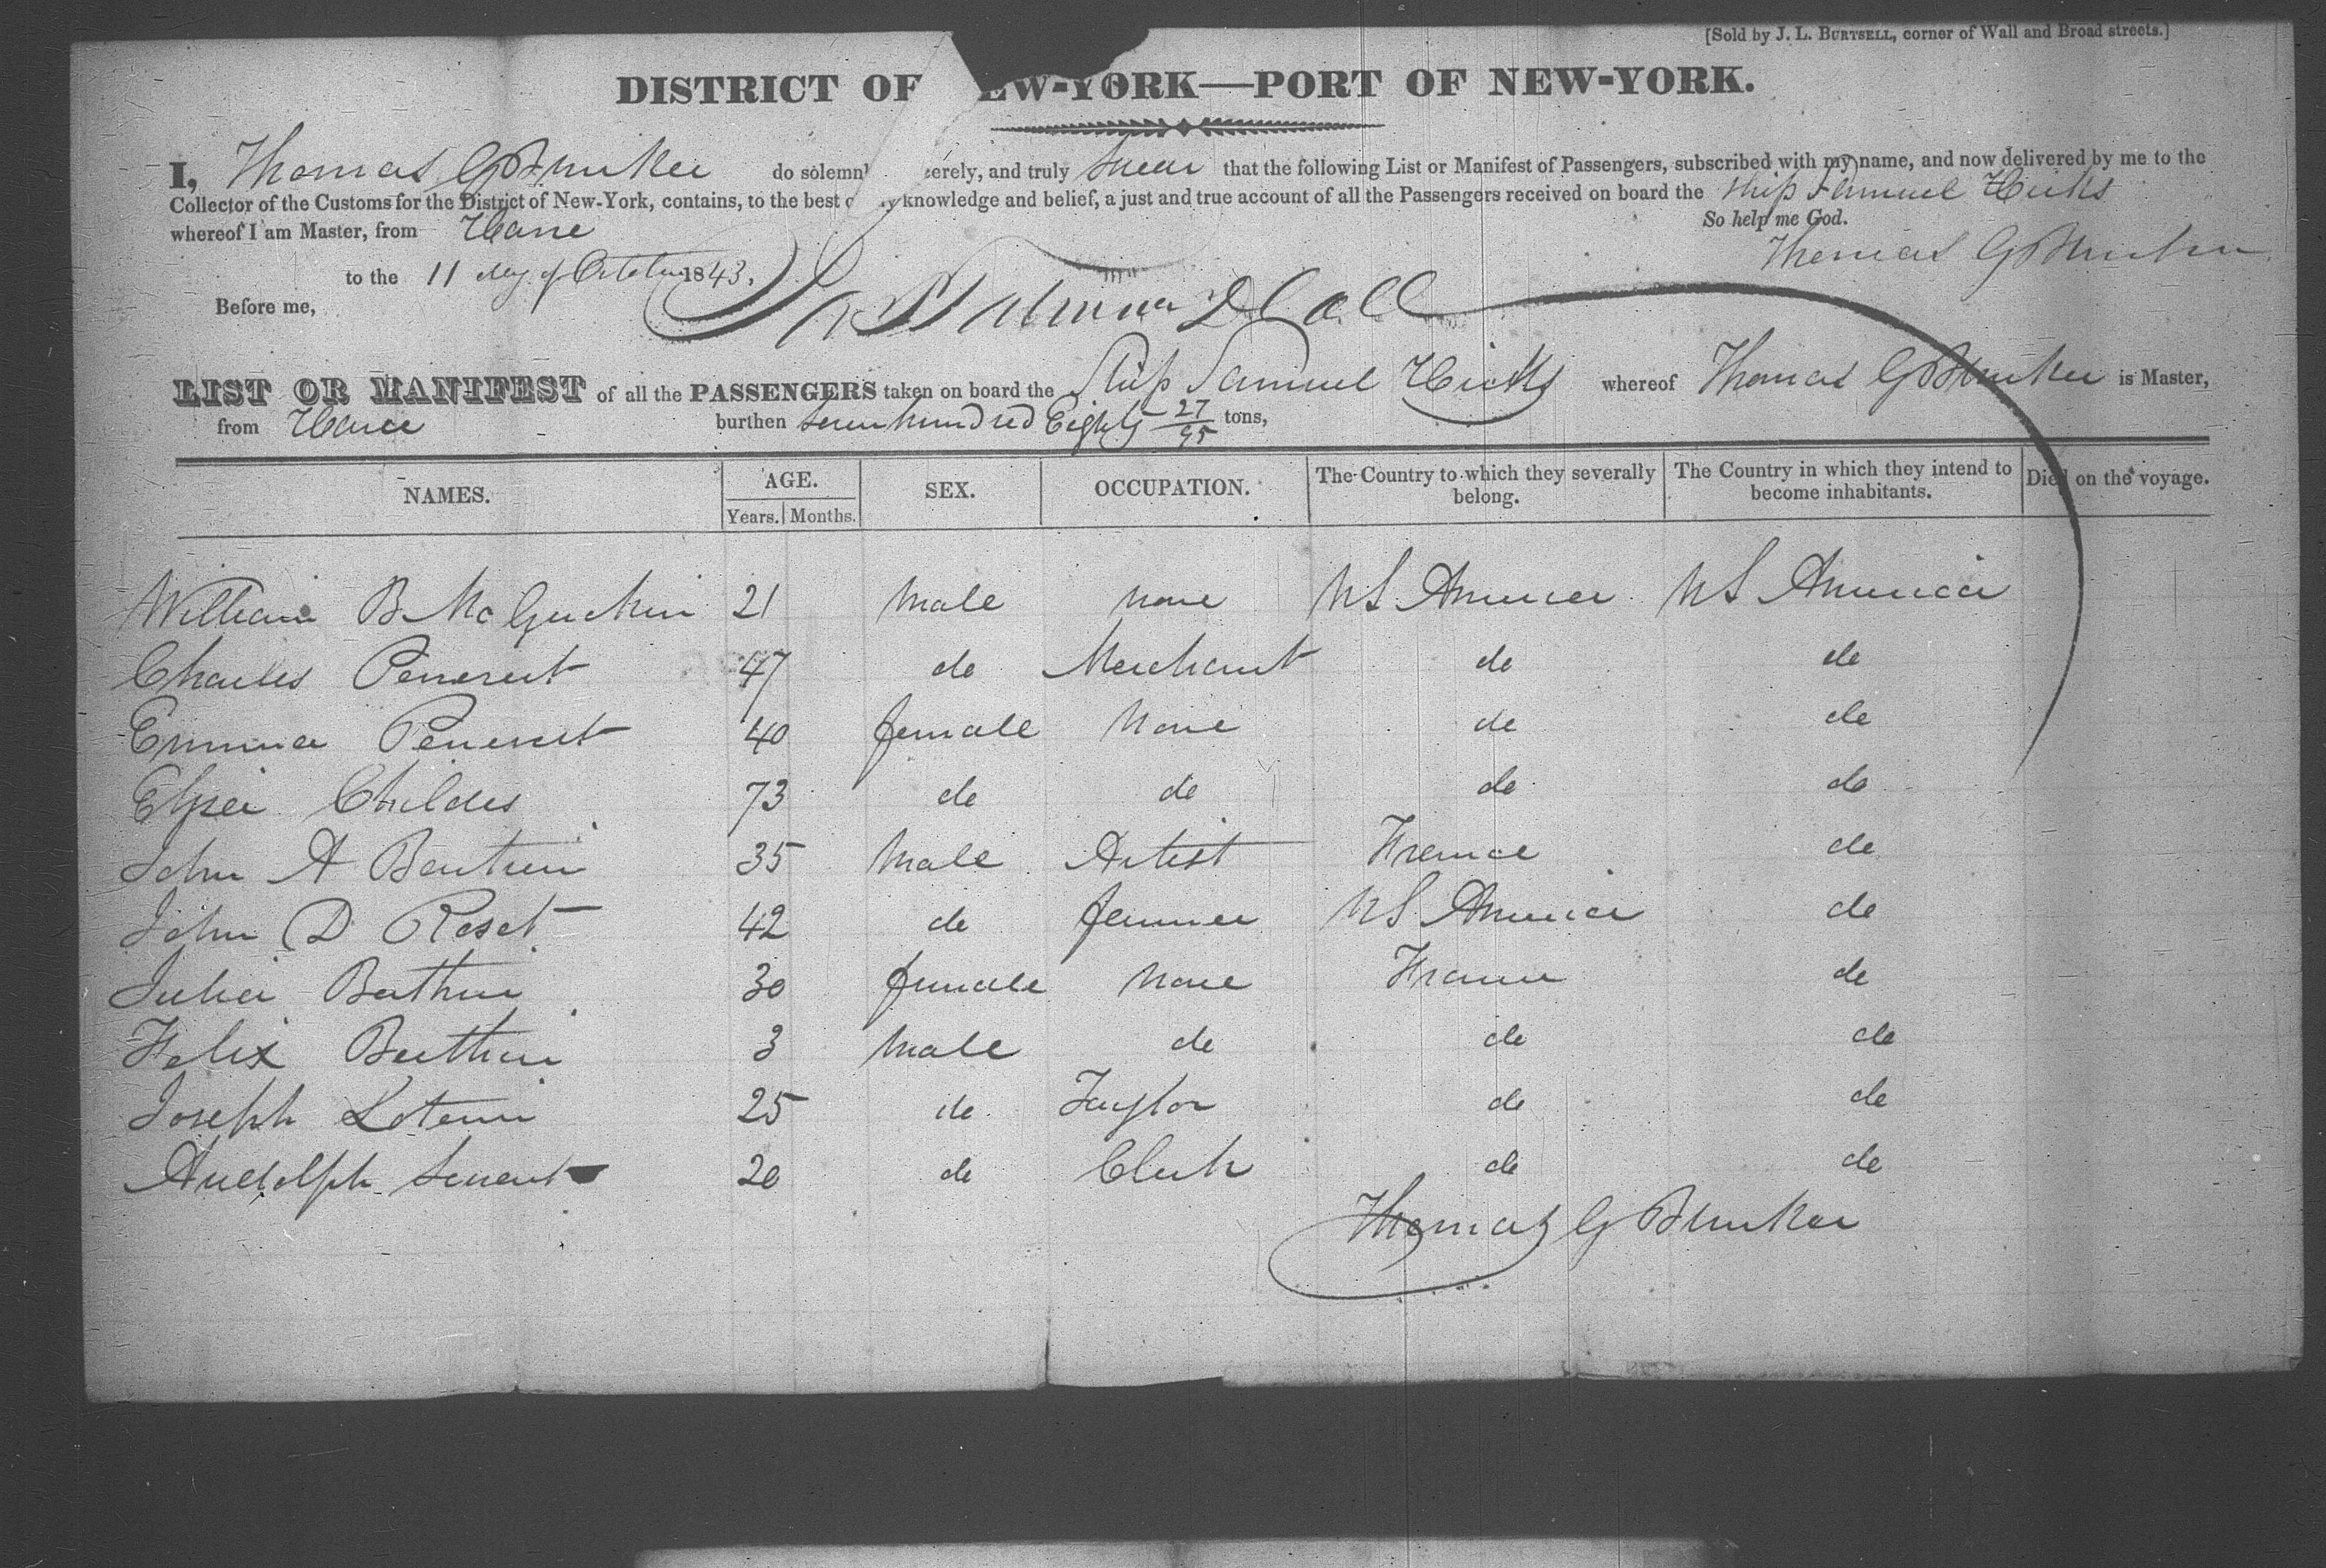 [Sold by J. L. BURTSELL, corner of Wall and Broad streets.]
DISTRICT OF EW-YORK—PORT OF NEW-YORK.
I, Thomas G Bunker do solemn erely, and truly swear that the following List or Manifest of Passengers, subscribed with my name, and now delivered by me to the
Collector of the Customs for the District of New-York, contains, to the best o y knowledge and belief, a just and true account of all the Passengers received on board the Ship Samuel Hicks
whereof I am Master, from Havre So help me God.
Thomas G Bunker
to the 11 day of October 1843.
Before me,
LIST OR MANIFEST of all the PASSENGERS taken on board the Ship Samuel Hicks whereof Thomas G Bunker is Master,
from Havre burthen Seven hundred Eighty 27/95 tons,
NAMES. AGE. SEX. OCCUPATION. The Country to which they severally belong. The Country in which they intend to become inhabitants. Died on the voyage.
Years. Months.
William B McGuckin 21 Male None US America US America
Charles 47 do Merchant do do
Emma 40 female None do do
Childes 73 do do do do
John A 35 Male Artist France do
John D Roset 42 do farmer US America do
Julia Berthin 30 female None France do
Felix Berthin 3 Male do do do
Joseph 25 do Taylor do do
20 do Clerk do do
Thomas G Bunker